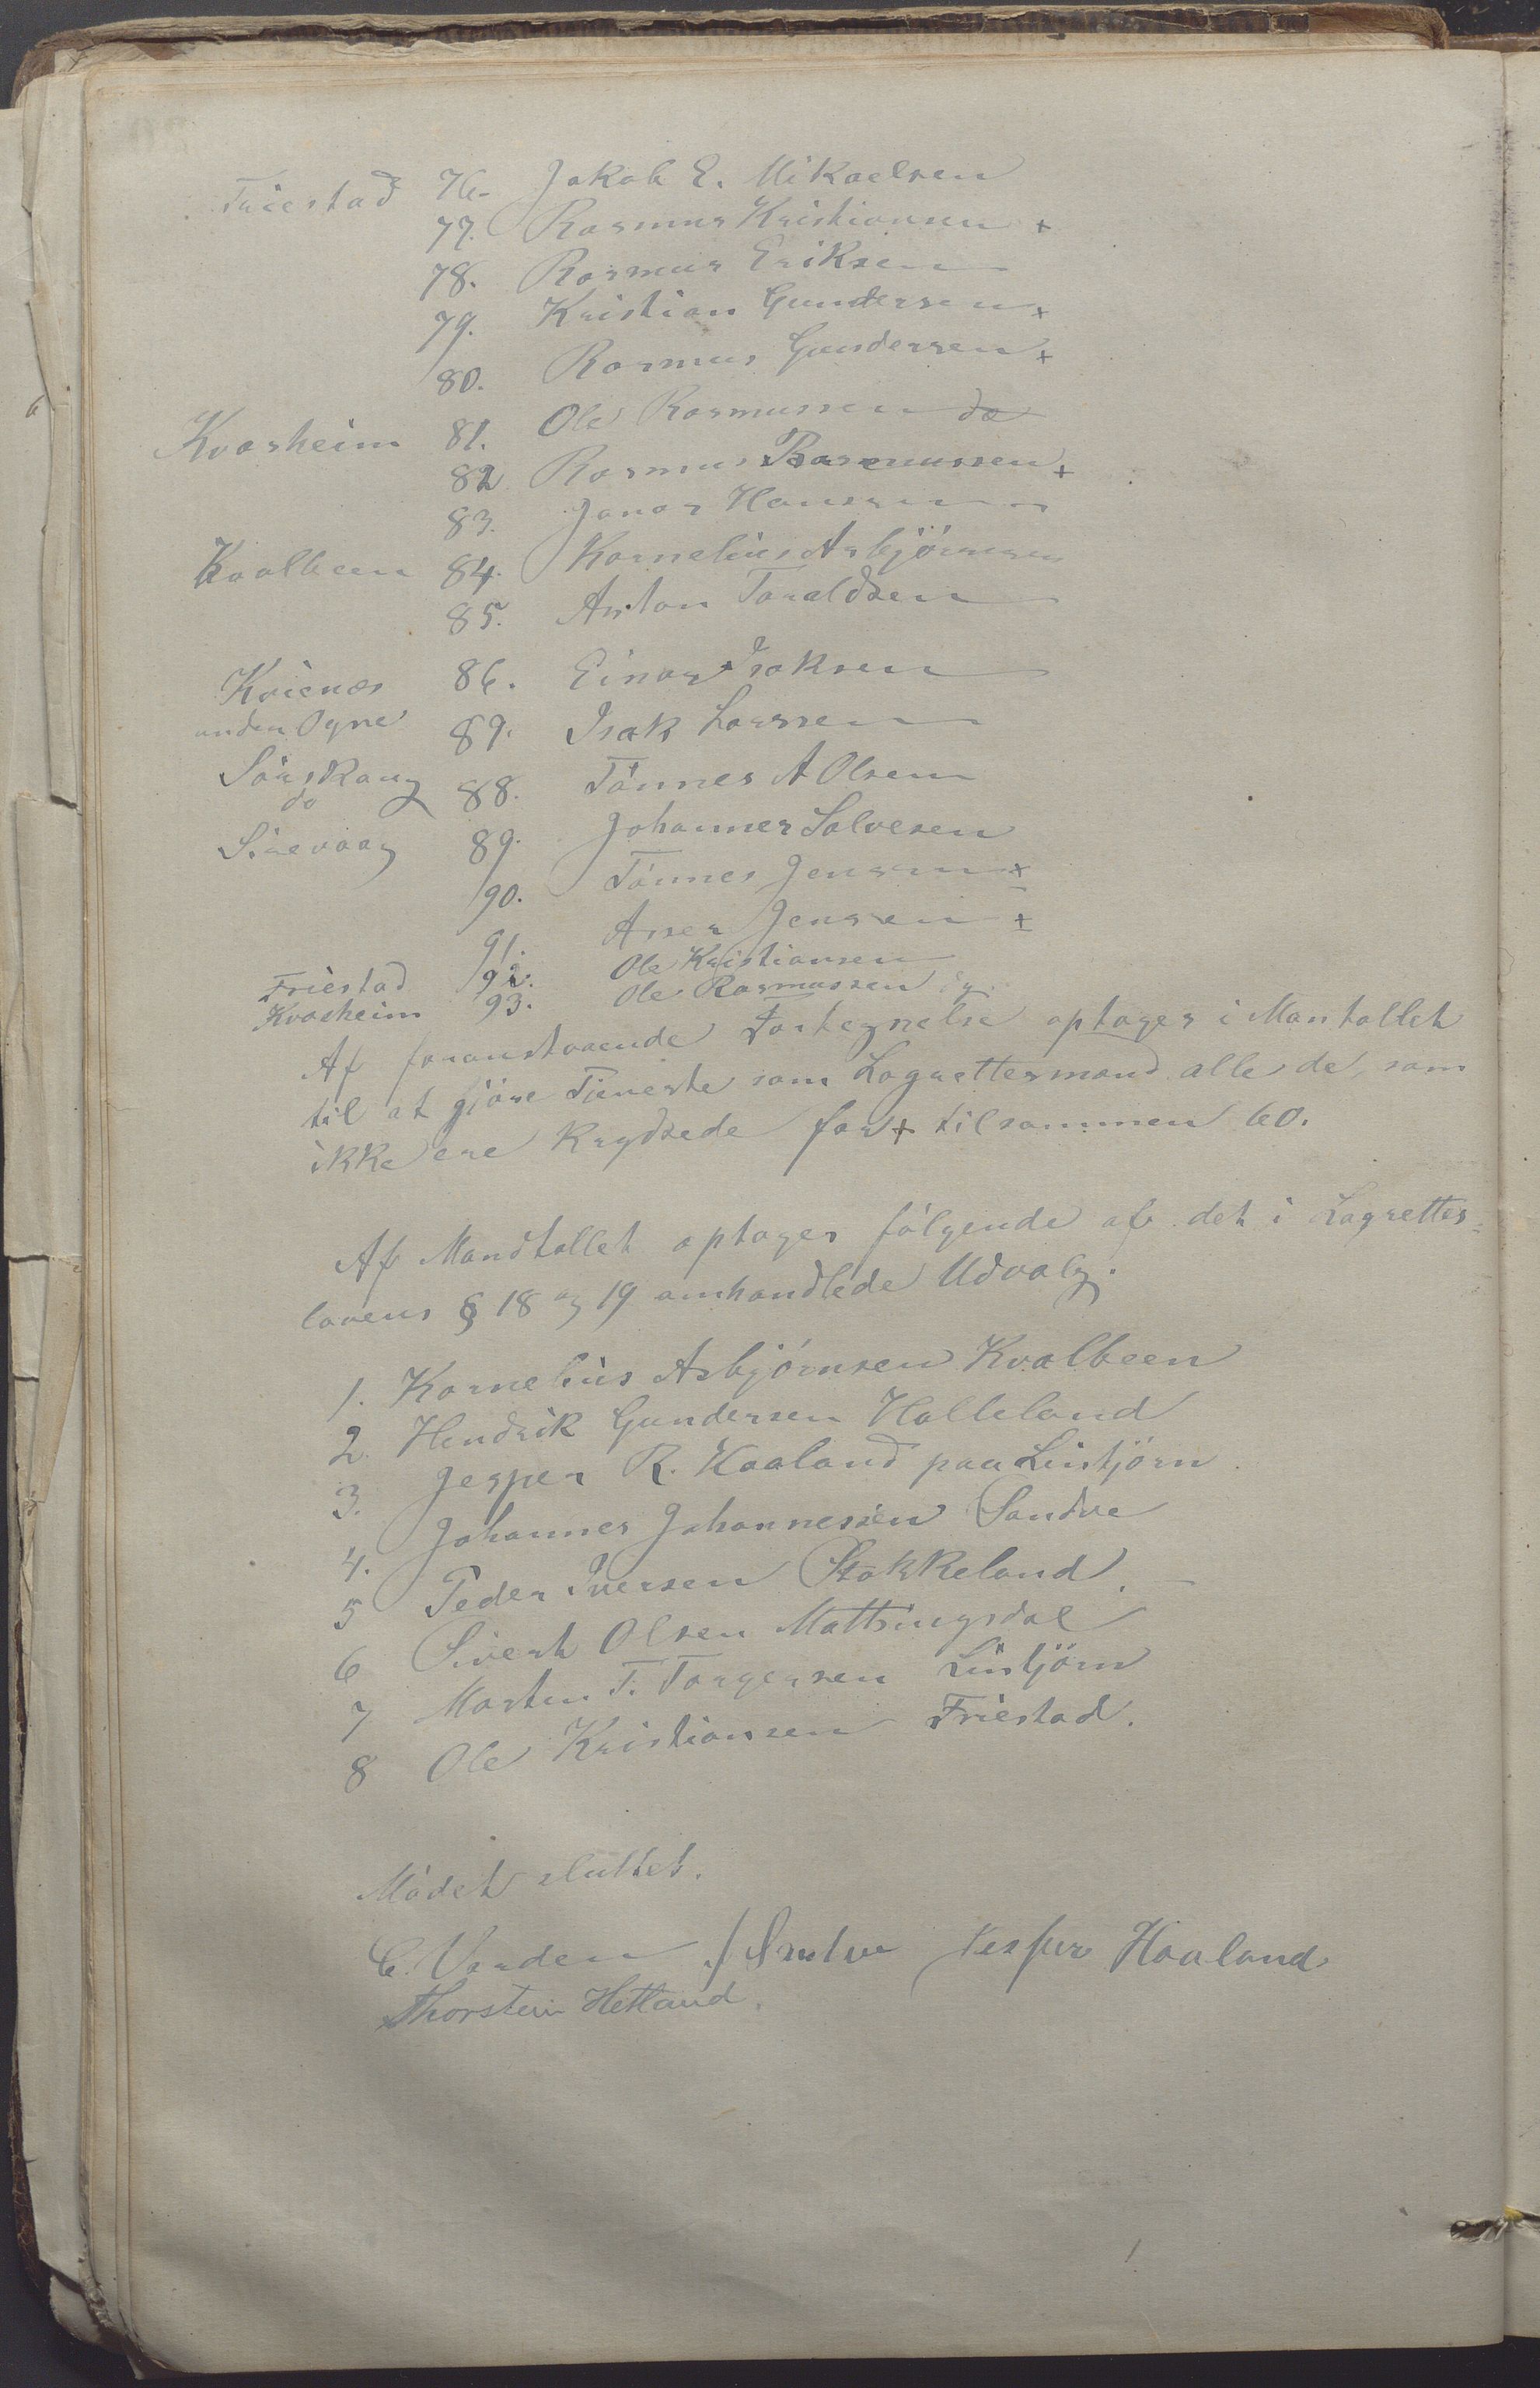 Friestad 76. Jakob E. Mikaelsen
77. Rasmus Kristiansen +
78. Rasmus Eriksen
79. Kristian Gundersen +
80. Rasmus Gundersen +
Kvasheim 81. Ole Rasmussen
82 Rasmus Rasmussen +
83. Jonas Hansen
Kvalbeen 84. Kornelius Asbjörnsen
85. Anton Taraldsen
Kvienes 86. Einar Isaksen
under Ogne 87. Isak Larssen
Sörskaug
do 88. Tönnes A Olsen
Sirevaag 89. Johannes Salvesen
90. Tönnes Jensen +
91. Asser Jensen +
Friestad 92. Ole Kristiansen
Kvasheim 93. Ole Rasmussen yg.
Af foranstaaende Fortegnelse optages i Mantallet
til at gjöre Tieneste som Lagrettesmænd alle de, som
ikke ere Krydsede for + tilsammen 60.
Af Mandtallet optages fölgende af det i Lagrettes-
lovens § 18 og 19 omhandlede Udvalg.
1. Kornelius Asbjörnsen Kvalbeen
2. Hendrik Gundersen Halleland
3. Jesper R. Haaland paa Lintjörn.
4. Johannes Johannessen Sandve
5 Peder Iversen Stokkeland.
6 Sivert Olsen Mattingsdal
7 Morten T. Torgersen Lintjörn
8 Ole Kristiansen Friestad.
Mödet sluttet.
C. Varden J Sandve Jesper Haaland
Thorstein Hetland.